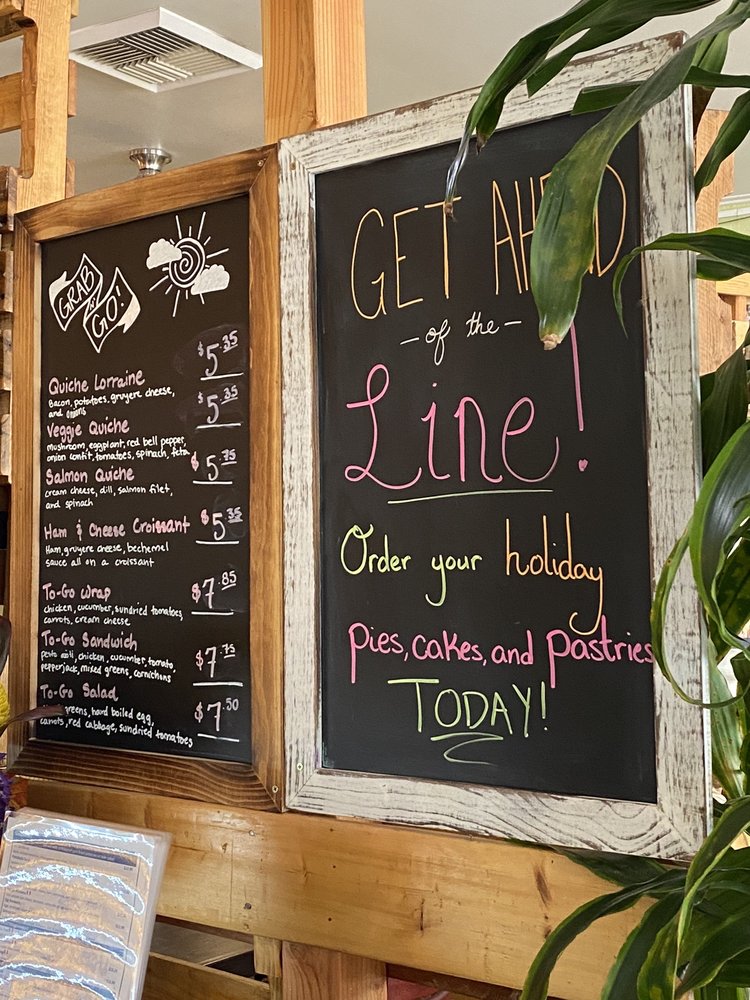 GRAB
n'
GO!
Quiche Lorraine $5.35
Bacon, potatoes, gruyere cheese,
and onions
Veggie Quiche $5.35
mushroom, eggplant, red bell pepper,
onion confit, tomatoes, spinach, feta
Salmon Quiche $5.75
cream cheese, dill, salmon filet,
and spinach
Ham & Cheese Croissant $5.35
Ham, gruyere cheese, bechemel
sauce all on a croissant
To-Go Wrap $7.85
chicken, cucumber, sundried tomatoes,
carrots, cream cheese
To-Go Sandwich $7.75
pesto aioli, chicken, cucumber, tomato,
pepperjack, mixed greens, cornichons
To-Go Salad $7.50
greens, hard boiled egg,
carrots, red cabbage, sundried tomatoes
GET AHEAD
-of the-
Line!
Order your holiday
pies, cakes, and pastries
TODAY!